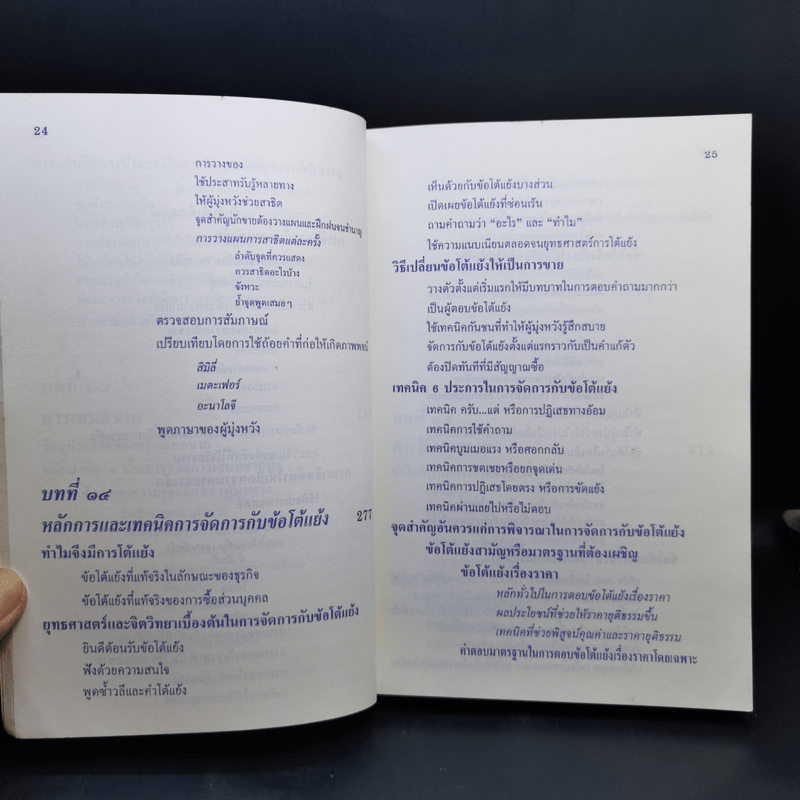 24
การวางของ
ใช้ประสาทรับรู้หลายทาง
ให้ผู้มุ่งหวังช่วยสาธิต
จุดสำคัญนักขายต้องวางแผนและฝึกฝนจนชำนาญ
การวางแผนการสาธิตแต่ละครั้ง
ลำดับจุดที่ควรแสดง
ควรสาธิตอะไรบ้าง
จังหวะ
ย้ำจุดพูดเสมอๆ
ตรวจสอบการสัมภาษณ์
เปรียบเทียบโดยการใช้ถ้อยคำที่ก่อให้เกิดภาพพจน์
สิมิลี่
เมตะเฟอร์
อะนาโลจี
พูดภาษาของผู้มุ่งหวัง
บทที่ ๑๔
หลักการและเทคนิคการจัดการกับข้อโต้แย้ง 277
ทำไมจึงมีการโต้แย้ง
ข้อโต้แย้งที่แท้จริงในลักษณะของธุรกิจ
ข้อโต้แย้งที่แท้จริงของการซื้อส่วนบุคคล
ยุทธศาสตร์และจิตวิทยาเบื้องต้นในการจัดการกับข้อโต้แย้ง
ยินดีต้อนรับข้อโต้แย้ง
ฟังด้วยความสนใจ
พูดซ้ำวลีและคำโต้แย้ง
25
เห็นด้วยกับข้อโต้แย้งบางส่วน
เปิดเผยข้อโต้แย้งที่ซ่อนเร้น
ถามคำถามว่า “อะไร” และ “ทำไม”
ใช้ความแนบเนียนตลอดจนยุทธศาสตร์การโต้แย้ง
วิธีเปลี่ยนข้อโต้แย้งให้เป็นการขาย
วางตัวตั้งแต่เริ่มแรกให้มีบทบาทในการตอบคำถามมากกว่า
เป็นผู้ตอบข้อโต้แย้ง
ใช้เทคนิคกันชนที่ทำให้ผู้มุ่งหวังรู้สึกสบาย
จัดการกับข้อโต้แย้งตั้งแต่แรกราวกับเป็นคำแก้ตัว
ต้องปิดทันทีที่มีสัญญาณซื้อ
เทคนิค 6 ประการในการจัดการกับข้อโต้แย้ง
เทคนิค ครับ...แต่ หรือการปฏิเสธทางอ้อม
เทคนิคการใช้คำถาม
เทคนิคบูมเมอแรง หรือศอกกลับ
เทคนิคการชดเชยหรือยกจุดเด่น
เทคนิคการปฏิเสธโดยตรง หรือการขัดแย้ง
เทคนิคผ่านเลยไปหรือไม่ตอบ
จุดสำคัญอันควรแก่การพิจารณาในการจัดการกับข้อโต้แย้ง
ข้อโต้แย้งสามัญหรือมาตรฐานที่ต้องเผชิญ
ข้อโต้แย้งเรื่องราคา
หลักทั่วไปในการตอบข้อโต้แย้งเรื่องราคา
ผลประโยชน์ที่ช่วยให้ราคายุติธรรมขึ้น
เทคนิคที่ช่วยพิสูจน์คุณค่าและราคายุติธรรม
คำตอบมาตรฐานในการตอบข้อโต้แย้งเรื่องราคาโดยเฉพาะ